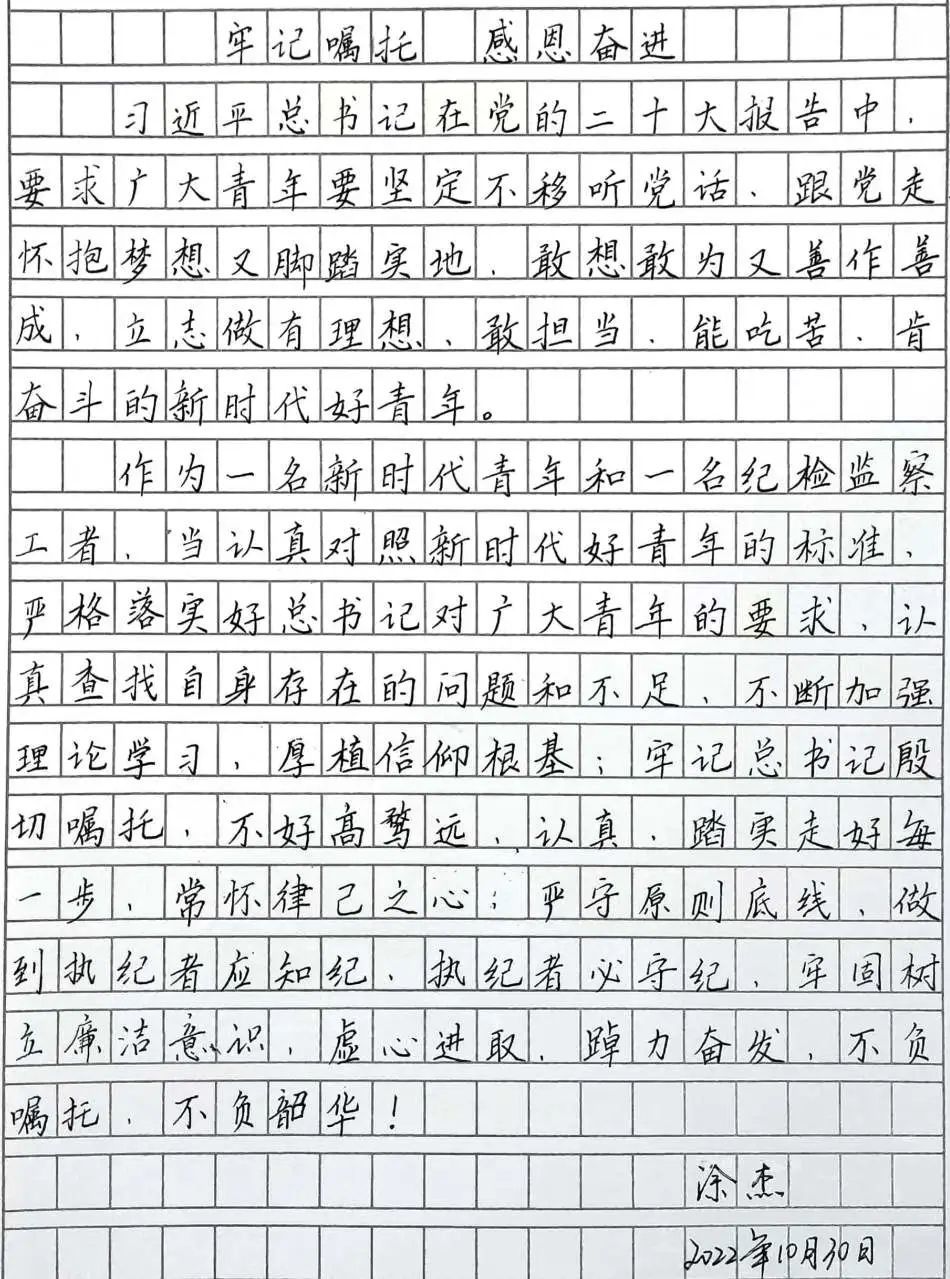 牢记嘱托 感恩奋进
习近平总书记在党的二十大报告中，
要求广大青年要坚定不移听党话、跟党走
怀抱梦想又脚踏实地，敢想敢为又善作善
成，立志做有理想、敢担当、能吃苦、肯
奋斗的新时代好青年。
作为一名新时代青年和一名纪检监察
工者，当认真对照新时代好青年的标准，
严格落实好总书记对广大青年的要求，认
真查找自身存在的问题和不足，不断加强
理论学习，厚植信仰根基；牢记总书记殷
切嘱托，不好高骛远，认真、踏实走好每
一步，常怀律己之心；严守原则底线，做
到执纪者应知纪、执纪者必守纪，牢固树
立廉洁意识，虚心进取，踔力奋发，不负
嘱托，不负韶华！
涂杰
2022年10月30日